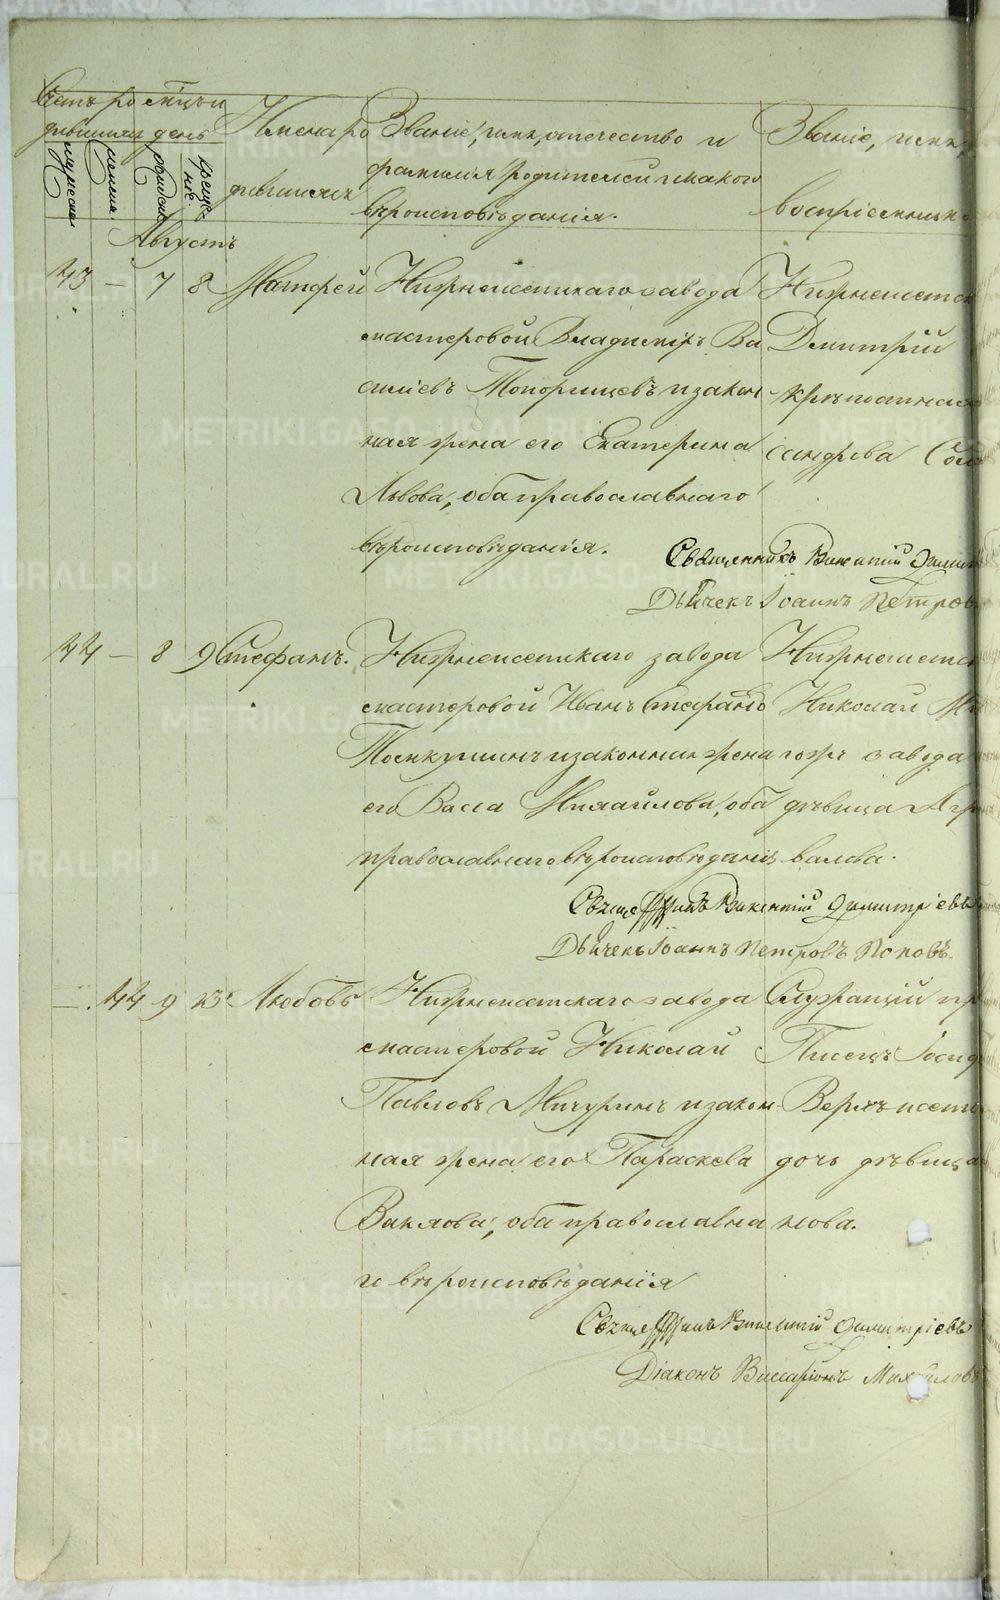 Счетъ ро мѣсяцъ и
дившихся день
Имена ро
дившихся
Званіе, имя, отечество и
фамилія родителей и какого
вѣроисповѣданія.
Званіе, имя,
воспріемник
мужеска
женска
рожденія
крещенія
Августъ
43 — 7 8 Матфей
Нижнеисетскаго завода
мастеровой Владимiръ Ва
сильевъ Топорищевъ и закон
ная жена его Екатерина
Львова, оба православнаго
вѣроисповѣданія.
Нижнеисетск
Дмитрій
крѣпостная
сандрова
Священникъ Викентий Дими
Дьячекъ Іоаннъ Петров
44 — 8 9 Стефанъ.
Нижнеисетскаго завода
мастеровой Иванъ Стефановъ
и законная жена
его Васса Михайлова, оба
православнаго вѣроисповѣданія
Нижнеисетск
Николай
тогожъ завода
дѣвица Агр
валова.
Священникъ Викентій Димитріевъ
Дьячекъ Іоаннъ Петровъ Поповъ.
— 44 9 10 Любовь
Нижнеисетскаго завода
мастеровой Николай
Павловъ Мичуринъ и закон
ная жена его Параскева
Вавлова, оба православна
го вѣроисповѣданія
Служащій пр
Писецъ
Верхъисетск
дочь дѣвица
нова.
Священникъ Викентій Димитріевъ
Діаконъ Виссаріонъ Михайловъ
METRIKI.GASO-URAL.RU